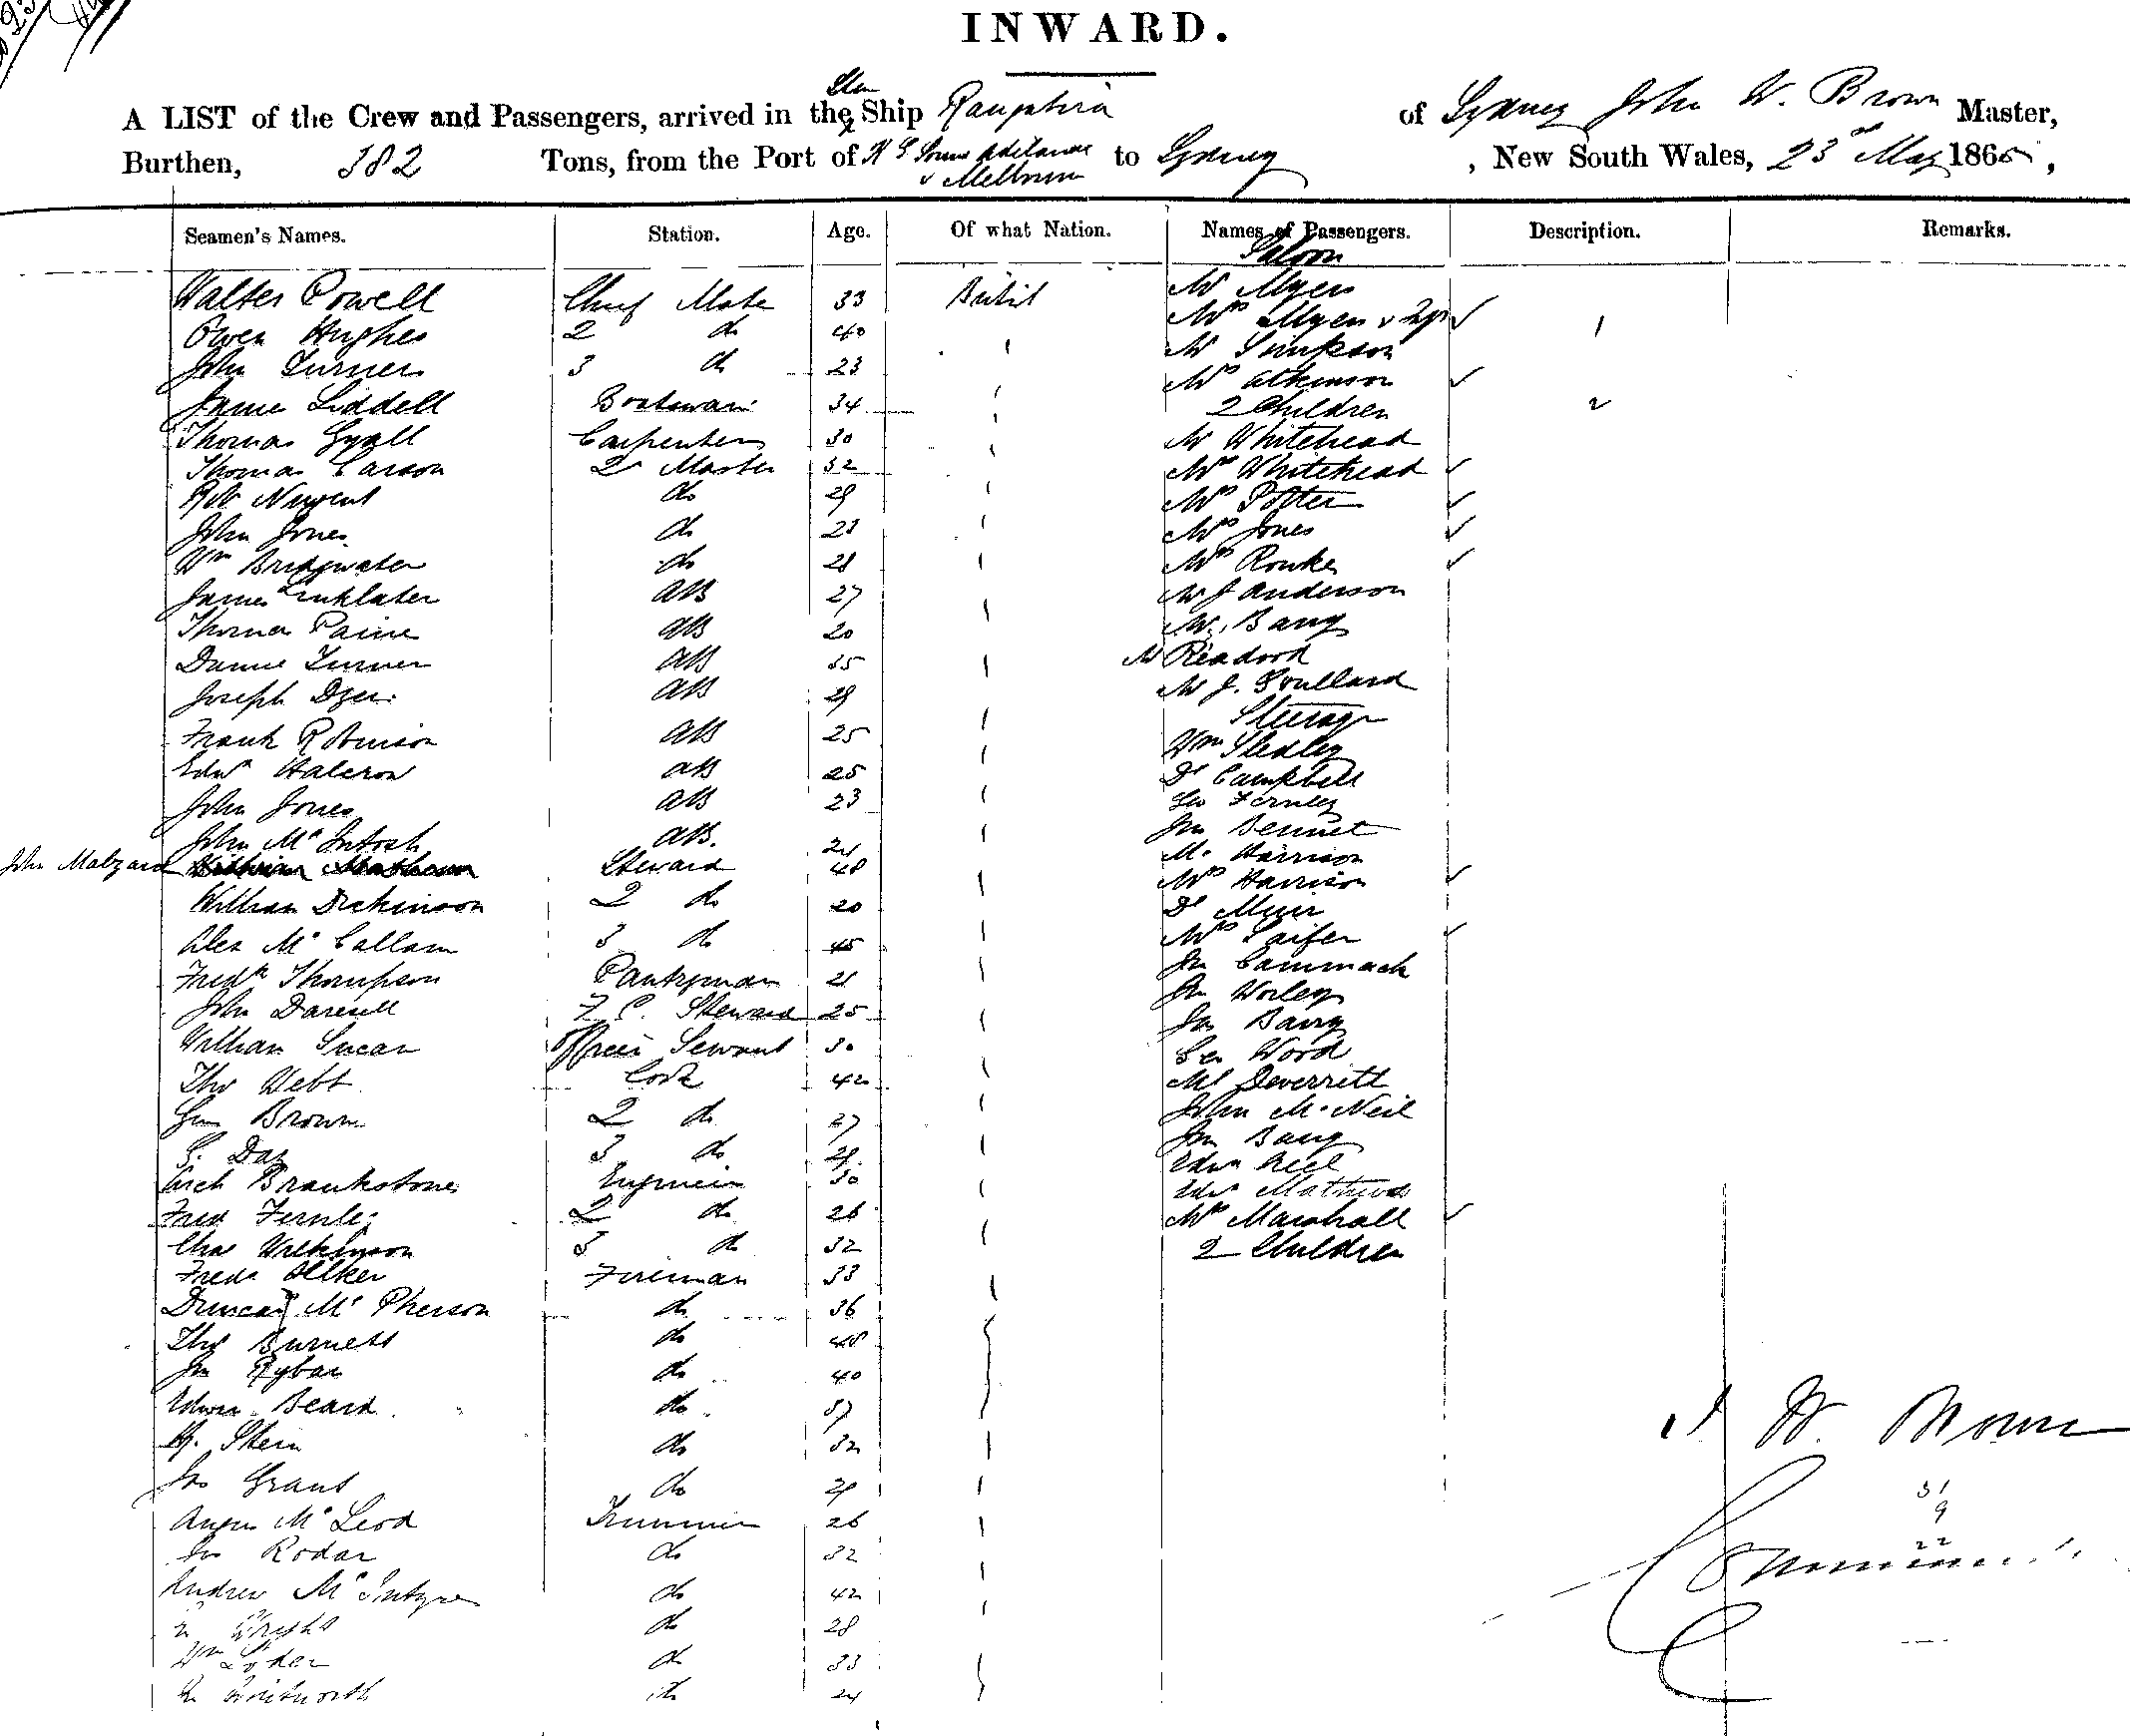 INWARD.
Stm
A LIST of the Crew and Passengers, arrived in the Ship Rangatira of Sydney John W. Brown Master,
Burthen, 382 Tons, from the Port of K G Sound Adelaide to Sydney, New South Wales, 23rd May 1865,
& Melbourne
Seamen's Names. Station. Age. Of what Nation. Names of Passengers. Description. Remarks.
Saloon
Walter Powell Chief Mate 33 British Mr Myers
Owen Hughes 2 do 40 Mrs Myers & 1
John Turner 3 do 23 Mr Simpson
James Liddell Boatswain 34 Mrs Atkinson
2 Children 2
Thomas Gyall Carpenter 30 Mr Whitehead
Thomas Carson 2 Master 32 Mrs Whitehead
Robt Nugent do 29 Mrs Potter
John Jones do Mrs Jones
Wm Bridgwater do 28 Mrs Rourke
James Linklater AB 27 Mr J Anderson
Thomas Paine AB 20 Mr. Bang
Turner AB 35 Mr Readord
Joseph Dyer AB 29 Mr J. Poullard
Steerage
Frank Robinson AB 25 Wm Sledley
Edwd Halcrow AB 25 Dl Campbell
John Jones AB 23 Geo Fernley
John McIntosh AB. 24 Jno Bennet
M. Harrison
John Malzard Steward 48 Mrs Harrison
William Dickinson 2 do 20 Dl Muir
Alex McCallam 3 do 45 Mrs
Fredk Thompson Pantryman 21 Jno Cammack
John Darnell F. C. Steward 25 Jno Worley
William Lucan Officers Servant 30 Jno
Geo Wood
Thos Webt Cook 42 Ml Deverritt
Geo Brown 2 do 27 John McNeil
G. Day 3 do 29 Jno Bang
Arch Brankstone Engineer 30 Edwd
Edwd Mathews
Fred Fernley 2 do 26 Mrs Marshall
Chas Wilkinson 3 do 32 2 Children
Fredk Fireman 33
Duncan McPherson do 36
Thos Burnett do 48
Jno Rybar do 40
Edward Beard do 37
H. Stein do 32
Jno Grant do 29
Angus McLeod Trimmer 26
Jno Rodar do 32
Andrew McIntyre do 42
Wright do 28
Wm do 33
Jno Whitworth do 24
J W Brown
31
9
22
Commander